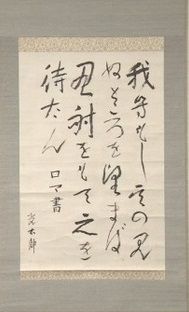 我等もし其の見
ぬところを望まば
忍耐をもて之を
待たん ロマ書
太郎